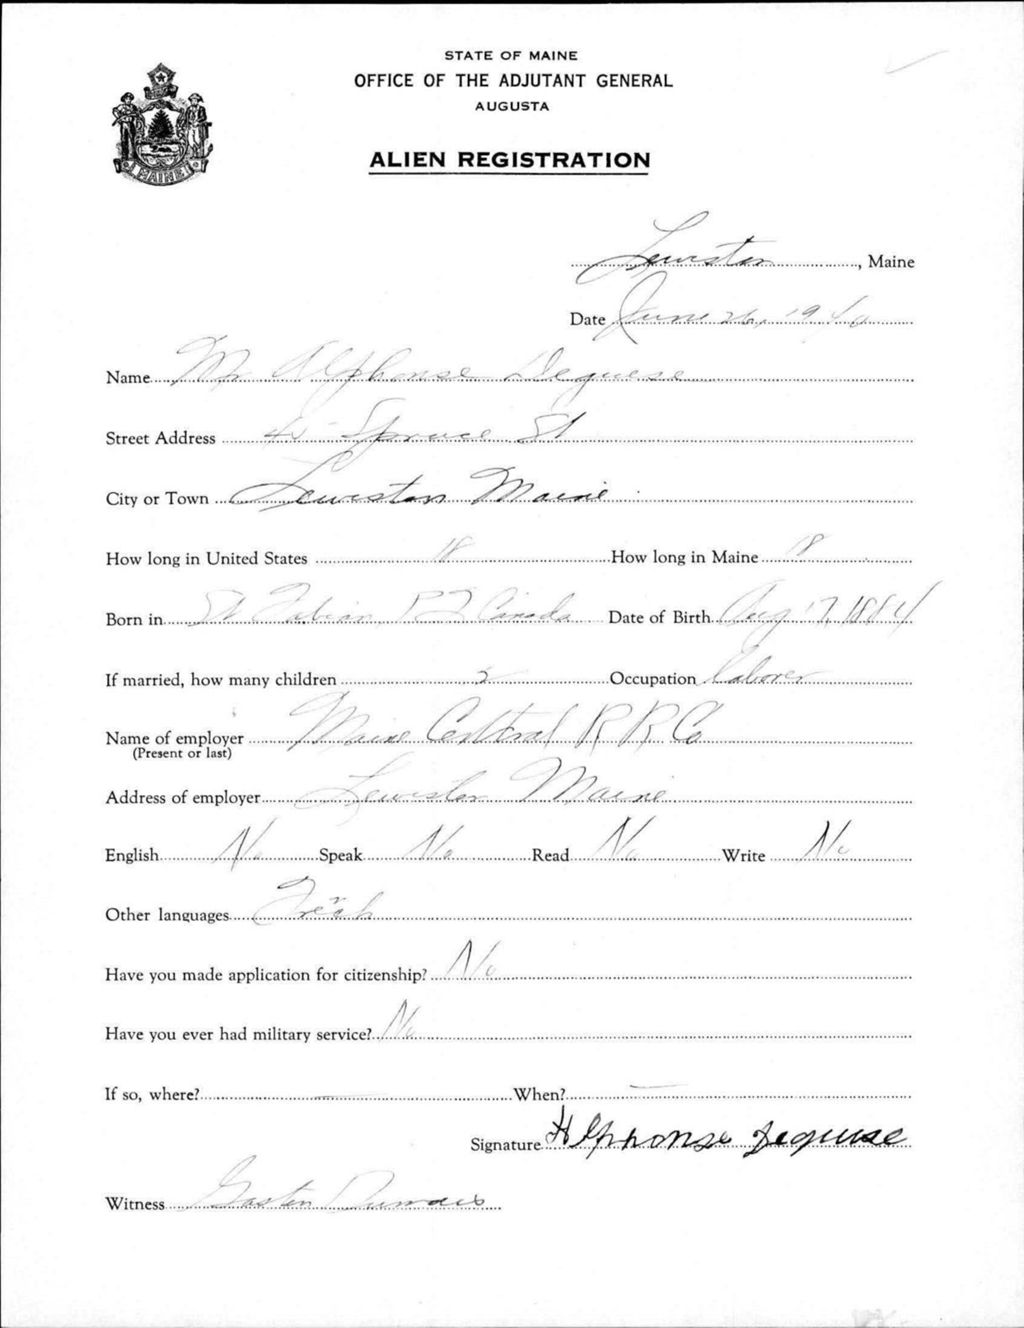 STATE OF MAINE
OFFICE OF THE ADJUTANT GENERAL
AUGUSTA
MAINE
ALIEN REGISTRATION
Lewiston, Maine
Date June 26, 1940
Name Mr Alphonse Deguese
Street Address Spruce St
City or Town Lewiston Maine
How long in United States 18 How long in Maine 18
Born in St Fabian, P2 Canada Date of Birth Aug 17, 1884
If married, how many children 2 Occupation Laborer
Name of employer Maine Central RR Co
(Present or last)
Address of employer Lewiston Maine
English No Speak No Read No Write No
Other languages Frech
Have you made application for citizenship? No
Have you ever had military service? No
If so, where? — When? —
Signature Alphonse Deguise
Witness Gaston Dumais